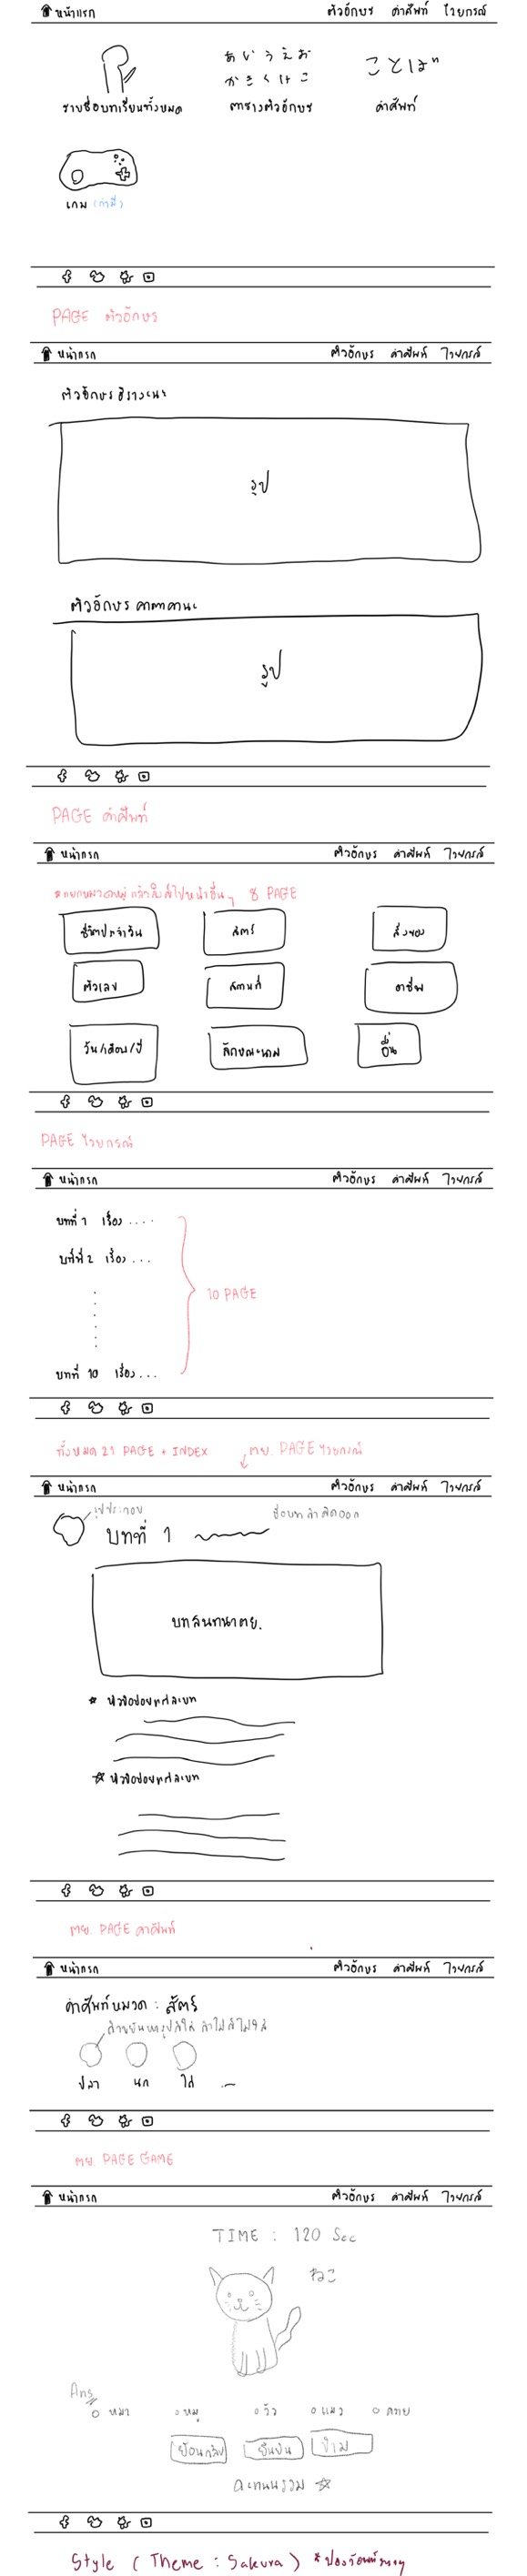 หน้าแรก ตัวอักษร คำศัพท์ ไวยกรณ์
あいうえお
かきくけこ
ことば
รายชื่อบทเรียนทั้งหมด ตารางตัวอักษร คำศัพท์
เกม (ถ้ามี)
PAGE ตัวอักษร
หน้าแรก ตัวอักษร คำศัพท์ ไวยกรณ์
ตัวอักษรฮิรางานะ
รูป
ตัวอักษร คาตาคานะ
รูป
PAGE คำศัพท์
หน้าแรก ตัวอักษร คำศัพท์ ไวยกรณ์
*แยกหมวดหมู่ แล้วลิ้งค์ไปหน้าอื่นๆ 8 PAGE
ชีวิตประจำวัน สัตว์ สิ่งของ
ตัวเลข สถานที่ อาชีพ
วัน/เดือน/ปี ลักษณะนาม อื่น
PAGE ไวยกรณ์
หน้าแรก ตัวอักษร คำศัพท์ ไวยกรณ์
บทที่ 1 เรื่อง ....
บทที่ 2 เรื่อง ...
10 PAGE
บทที่ 10 เรื่อง ...
ทั้งหมด 21 PAGE + INDEX ตย. PAGE ไวยกรณ์
หน้าแรก ตัวอักษร คำศัพท์ ไวยกรณ์
รูปประกอบ
บทที่ 1
บทสนทนาตย.
หัวข้อย่อยแต่ละบท
หัวข้อย่อยแต่ละบท
ตย. PAGE คำศัพท์
หน้าแรก ตัวอักษร คำศัพท์ ไวยกรณ์
คำศัพท์หมวด : สัตว์
ปลา นก ไก่ ...
ตย. PAGE GAME
หน้าแรก ตัวอักษร คำศัพท์ ไวยกรณ์
TIME : 120 Sec
ねこ
Ans
หมา หมู วัว แมว ควาย
ย้อนกลับ ยืนยัน ข้าม
คะแนนรวม
Style (Theme : Sakura)